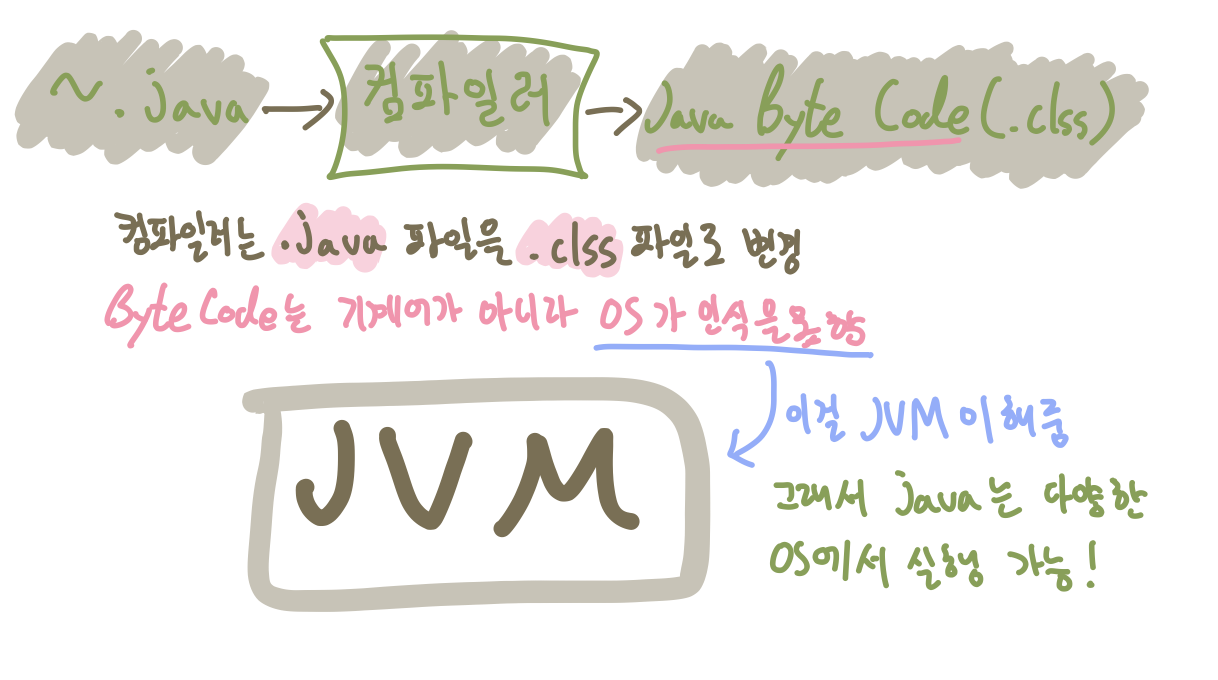 ~.java → 컴파일러 → Java Byte Code(.clss)
컴파일러는 .java 파일을 .clss 파일로 변경
Byte Code는 기계어가 아니라 OS가 인식을못함
JVM
이걸 JVM이해줌
그래서 java는 다양한
OS에서 실행 가능!